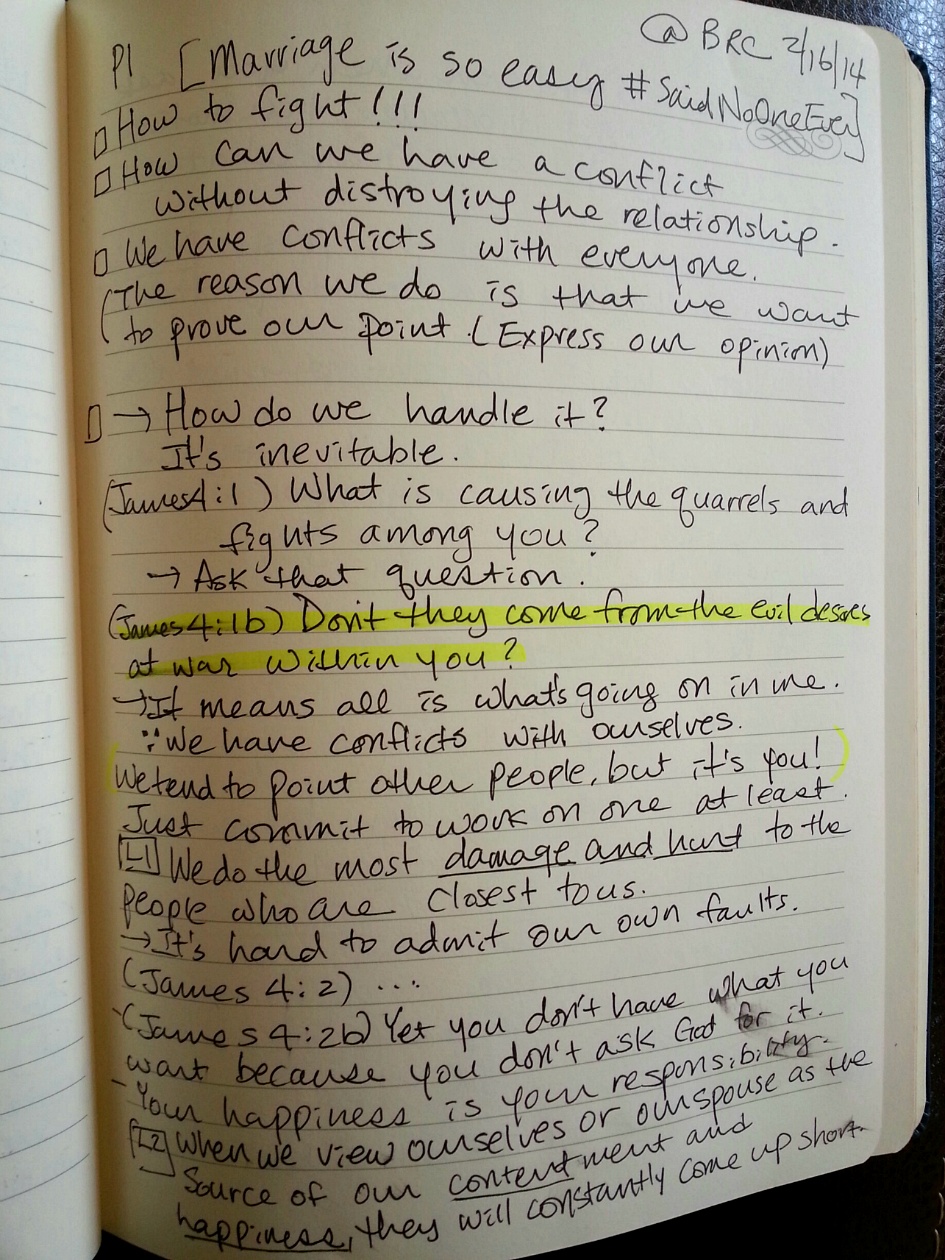 @ BRC 2/16/14
P1 [Marriage is so easy #SaidNoOneEver]
□ How to fight!!!
□ How can we have a conflict
without distroying the relationship.
□ We have conflicts with everyone.
(The reason we do is that we want
to prove our point. (Express our opinion)
□ → How do we handle it?
It's inevitable.
(James 4:1) What is causing the quarrels and
fights among you?
→ Ask that question.
(James 4:1b) Don't they come from the evil desires
at war within you?
→ It means all is what's going on in me.
∵ We have conflicts with ourselves.
(We tend to point other people, but it's you!)
Just commit to work on one at least.
[L1] We do the most damage and hurt to the
people who are closest to us.
→ It's hard to admit our own faults.
(James 4:2) ...
- (James 4:2b) Yet you don't have what you
want because you don't ask God for it.
- Your happiness is your responsibility.
[L2] When we view ourselves or our spouse as the
source of our contentment and
happiness, they will constantly come up short.